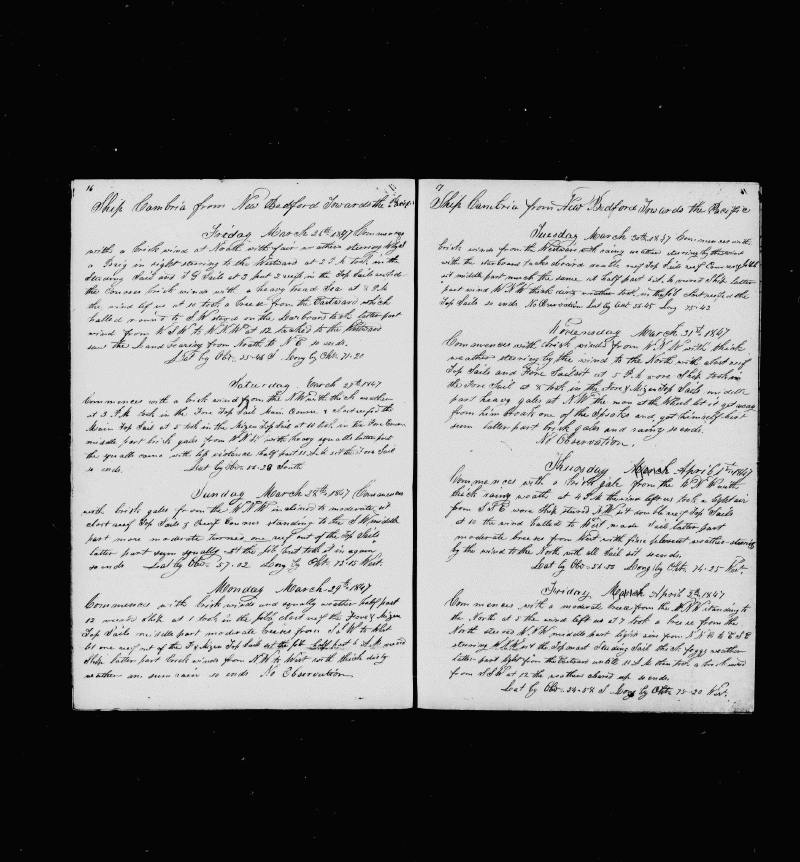 16
Ship Cambria from New Bedford Towards the Pacific
Friday March 26th 1847 Commences
with a brisk wind at North with fair weather steering
a Brig in sight steering to the Westward at 2 P.M took in the
Studding Sail and T G Sails at 3 part 2 reefs in the Top Sails
the Courses brisk winds with a heavy head Sea at 8 P.M
the wind left us at 10 took a breeze from the Eastward which
halled round to S.W stood on the Larboard tack latter part
wind from W S W to W.N.W at 12 tacked to the Westward
saw the Land bearing from North to N E so ends
Lat by Obs 55-46 S Long by Chr. 71-20
Saturday March 27th 1847
Commences with a brisk wind from the N.W with thick weather
at 3 P.M took in the Fore Top Sail Main Course & close reefed the
Main Top Sail at 5 took in the Mizen Top Sail at 10 took in the Fore Course
middle part brisk gales from W.N.W with heavy squalls latter part
the squalls came with less violence half past 11 A.M set the Fore Sail
so ends. Lat by Obs 56-28 South
Sunday March 28th 1847 Commences
with brisk gales from the W.N.W inclined to moderate, set
close reef Top Sails & Reef Courses standing to the S.W middle
part more moderate turned one reef out of the Top Sails
latter part squally set the Jib but took it in again
so ends Lat by Obs. 57-02 Long by Chr. 73-15 West.
Monday March 29th 1847
Commences with brisk winds and squally weather half past
12 weared ship at 1 took in the Jib, close reef the Fore & Mizen
Top Sails middle part moderate breezes from S.S.W to West
let one reef out of the F & Mizen Top Sails set the Jib half past 6 A.M weared
Ship latter part brisk winds from N.W to West with thick dirty
weather so ends No Observation
17
Ship Cambria from New Bedford Towards the Pacific
Tuesday March 30th 1847 Commences with
brisk winds from the Westward with rainy weather steering by the wind
with the starboard tacks aboard double reef Top Sails reef Courses
set middle part much the same at half past 6 A.M weared Ship latter
part wind W.N.W thick dirty weather took in the Jib close reefed the
Top Sails so ends No Observation Lat by Acct 56-45 Long 75-42
Wednesday March 31st 1847
Commences with brisk winds from W.N.W with thick
weather steering by the wind to the North with close reef
Top Sails and Fore Sail set at 5 P.M wore Ship took in
the Fore Sail at 8 took in the Fore & Mizen Top Sails middle
part heavy gales at N.W the man at the Wheel let it get away
from him broak one of the Spoaks and got himself hurt
some latter part brisk gales and rainy so ends.
No Observation.
Thursday March April 1st 1847
Commences with a brisk gale from the W.N.W with
thick rainy weather at 4 P.M the wind left us took a light air
from S.S.E wore ship steered N.W set double reef Top Sails
at 10 the wind halled to West made Sail latter part
moderate breezes from West with fine pleasant weather steering
by the wind to the North with all Sail set so ends.
Lat by Obs 56-02 Long by Chr. 74-25 West.
Friday March April 2nd 1847
Commences with a moderate breeze from the W.N.W standing to
the North at 5 the wind left us at 7 took a breeze from the
North steered W.N.W middle part light airs from N.N.E to E.S.E
steering N.N.W set the Top mast Studing Sail thick foggy weather
latter part light from the Eastward untill 11 A.M then took a brisk wind
from S.S.W at 12 the weather cleared up so ends.
Lat by Obs. 54-58 S Long by Chr. 75-20 West.